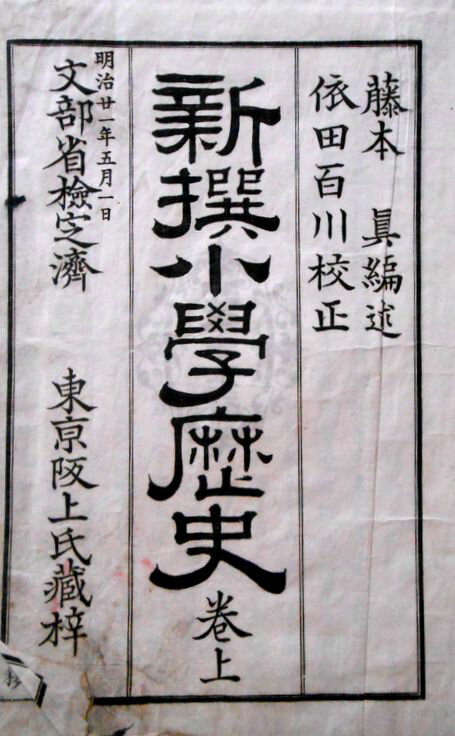 藤本　眞編述
依田百川校正
新撰小學歴史
卷上
明治廿一年五月一日
文部省檢定濟
東京阪上氏藏梓